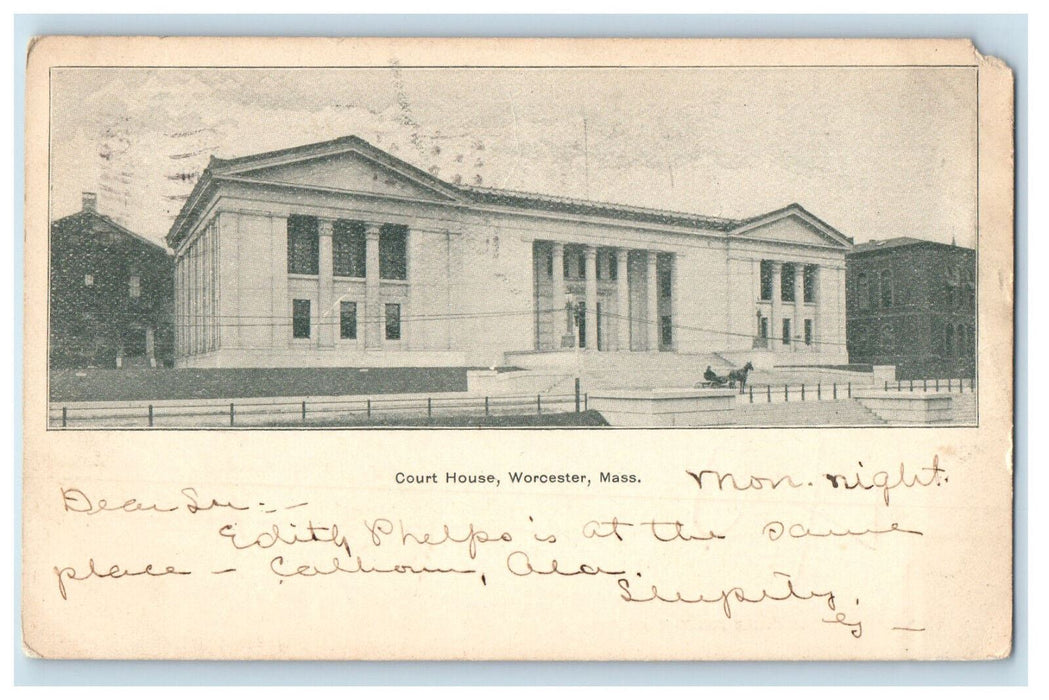 Court House, Worcester, Mass.
Mon. night.
Dear Su:-
Edith Phelps is at the same
place - Calhoun, Ala.
Sleepity,